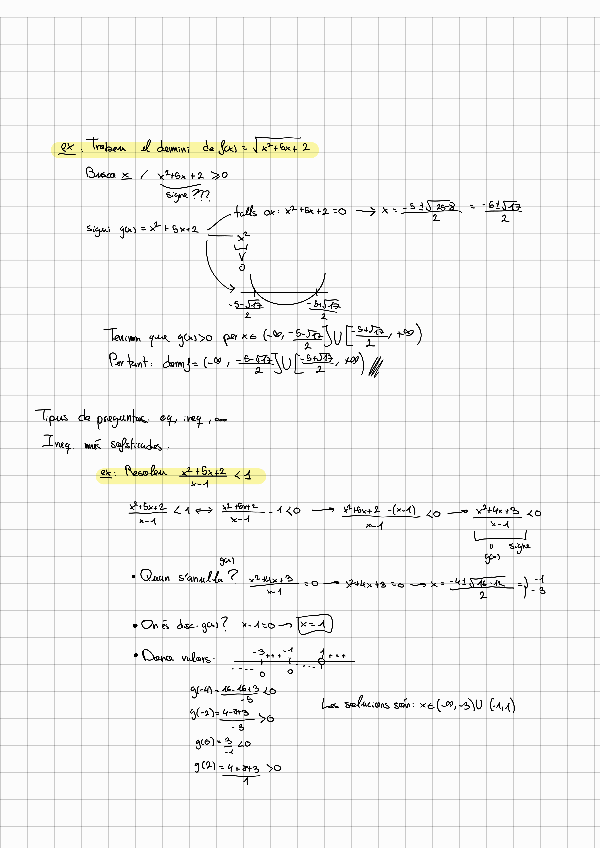 ex: Trobem el domini de f(x) = √(x²+5x+2)
Busco x / x²+5x+2 ≥ 0
signe ???
talls ox: x²+5x+2 = 0 → x = (-5±√(25-8))/2 = (-5±√17)/2
sigui g(x) = x²+5x+2
x²
V
0
(-5-√17)/2 (-5+√17)/2
Tenim que g(x)≥0 per x∈(-∞, (-5-√17)/2] ∪ [(-5+√17)/2, +∞)
Per tant: dom f = (-∞, (-5-√17)/2] ∪ [(-5+√17)/2, +∞)
Tipus de preguntes: eq, ineq,
Ineq. més sofisticades.
ex: Resolem (x²+5x+2)/(x-1) < 1
(x²+5x+2)/(x-1) < 1 ↔ (x²+5x+2)/(x-1) - 1 < 0 → (x²+5x+2-(x-1))/(x-1) < 0 → (x²+4x+3)/(x-1) < 0
g(x) signe
g(x)
• Quan s'anul·la? (x²+4x+3)/(x-1) = 0 → x²+4x+3 = 0 → x = (-4±√(16-12))/2 = } -1 -3
• On és disc. g(x)? x-1=0 → x=1
• Dona valors: -3 +++ -1 1 +++
0 0
g(-4) = (16-16+3)/-5 < 0
Les solucions són: x∈(-∞,-3)∪(-1,1)
g(-2) = (4-8+3)/-3 > 0
g(0) = 3/-1 < 0
g(2) = (4+8+3)/1 > 0